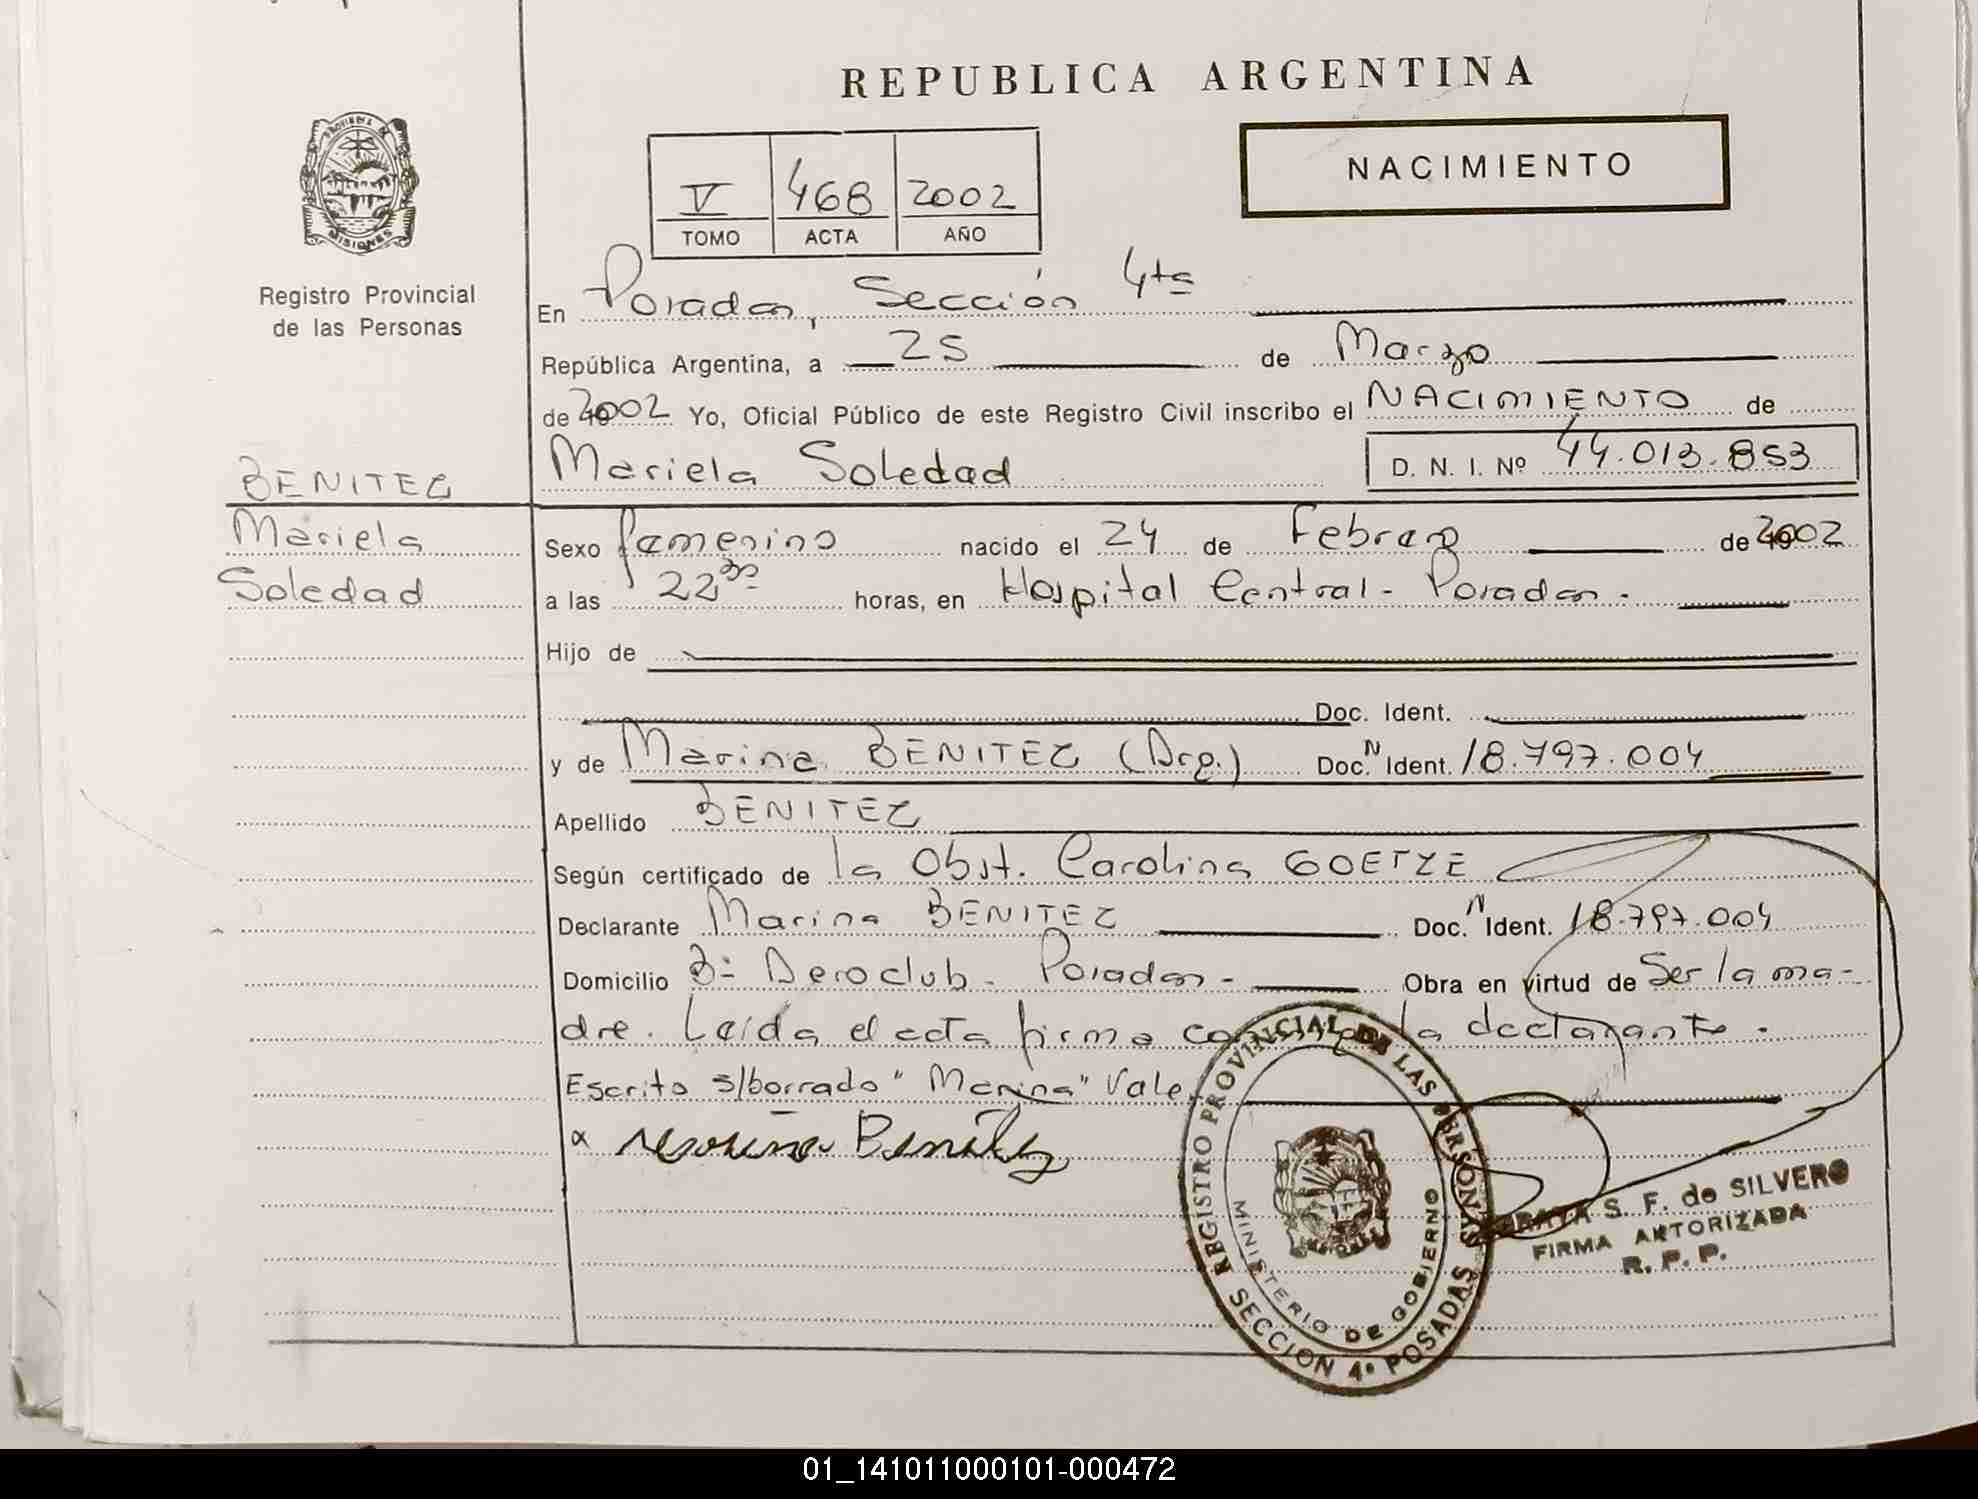 REPUBLICA ARGENTINA
PROVINCIA DE
MISIONES
Registro Provincial
de las Personas
NACIMIENTO
V 468 2002
TOMO ACTA AÑO
En Posadas, Sección 4ta
República Argentina, a 25 de Marzo
de 2002 Yo, Oficial Público de este Registro Civil inscribo el NACIMIENTO de
Mariela Soledad D. N. I. Nº 44.013.853
BENITEZ
Mariela
Soledad
Sexo femenino nacido el 24 de Febrero de 2002
a las 22 30 horas, en Hospital Central - Posadas -
Hijo de
Doc. Ident.
y de Marina BENITEZ (Arg.) Doc. N Ident. 18.797.004
Apellido BENITEZ
Según certificado de la Obst. Carolina GOETZE
Declarante Marina BENITEZ Doc. N Ident. 18.797.004
Domicilio Bº Aeroclub - Posadas - Obra en virtud de Ser la ma-
dre. Leída el acta firma conmigo la declarante.
Escrito s/borrado "Marina" Vale
Benitez
REGISTRO PROVINCIAL DE LAS PERSONAS
MINISTERIO DE GOBIERNO
SECCION 4ª POSADAS
S. F. de SILVERO
FIRMA AUTORIZADA
R. P. P.
01_141011000101-000472